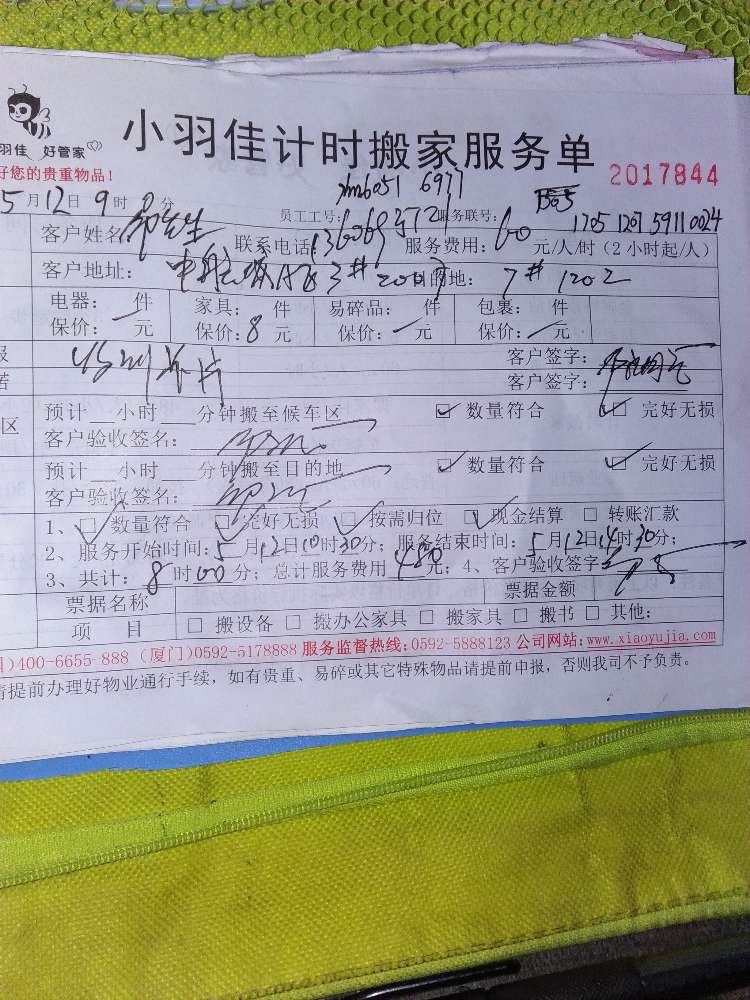 羽佳 好管家
小羽佳计时搬家服务单
好您的贵重物品!
2017844
5月12日9时 分
员工工号: xm6051 6977 服务联号: 1705 1207 5911 0024
客户姓名: 联系电话: 服务费用: 60 元/人/时 (2小时起/人)
客户地址: 3# 目的地: 7# 1202
电器: 件 家具: 件 易碎品: 件 包裹: 件
保价: 一 元 保价: 8 元 保价: 一 元 保价: 一 元
报 客户签字:
诺 客户签字:
区 预计 小时 分钟搬至候车区 数量符合 完好无损
客户验收签名:
预计 小时 分钟搬至目的地 数量符合 完好无损
客户验收签名:
1、 数量符合 完好无损 按需归位 现金结算 转账汇款
2、服务开始时间: 5月12日10时30分; 服务结束时间: 5月12日14时30分;
3、共计: 8时00分; 总计服务费用 480元; 4、客户验收签字
票据名称 票据金额
项 目 搬设备 搬办公家具 搬家具 搬书 其他:
)400-6655-888 (厦门)0592-5178888 服务监督热线:0592-5888123 公司网站:www.xiaoyujia.com
请提前办理好物业通行手续, 如有贵重、易碎或其它特殊物品请提前申报, 否则我司不予负责。